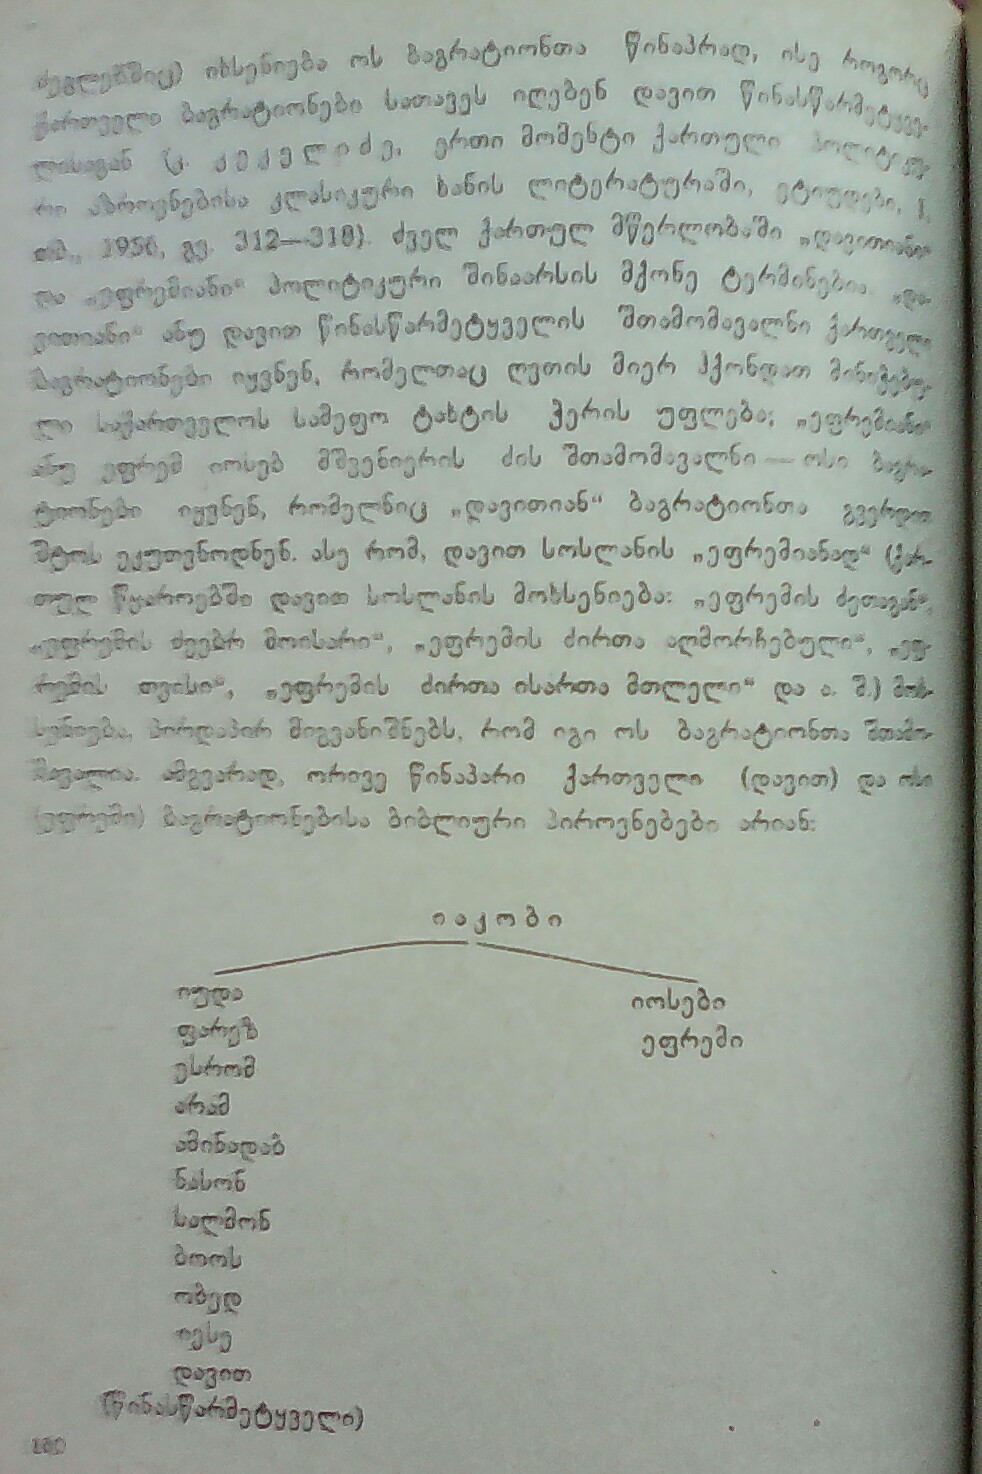 ძეგლებშიც) იხსენიება ოს ბაგრატიონთა წინაპრად, ისე როგორც
ქართველი ბაგრატიონები სათავეს იღებენ დავით წინასწარმეტყვე-
ლისაგან (კ. კეკელიძე, ერთი მომენტი ქართული პოლიტიკუ-
რი აზროვნებისა კლასიკური ხანის ლიტერატურაში, ეტიუდები, I,
თბ., 1956, გვ. 312—318). ძველ ქართულ მწერლობაში „დავითიანი“
და „ეფრემიანი“ პოლიტიკური შინაარსის მქონე ტერმინებია. „და-
ვითიანი“ ანუ დავით წინასწარმეტყველის შთამომავალნი ქართველი
ბაგრატიონები იყვნენ, რომელთაც ღვთის მიერ ჰქონდათ მინიჭებუ-
ლი საქართველოს სამეფო ტახტის ჭერის უფლება; „ეფრემიანი“
ანუ ეფრემ იოსებ მშვენიერის ძის შთამომავალნი — ოსი ბაგრა-
ტიონები იყვნენ, რომელნიც „დავითიან“ ბაგრატიონთა გვერდით
შტოს ეკუთვნოდნენ. ასე რომ, დავით სოსლანის „ეფრემიანად“ (ქარ-
თულ წყაროებში დავით სოსლანის მოხსენიება: „ეფრემის ძეთაგან“,
„ეფრემის ძეებრ მოისარი“, „ეფრემის ძირთა აღმორჩებული“, „ეფ-
რემის თვისი“, „ეფრემის ძირთა ისართა მთლელი“ და ა. შ.) მოხ-
სენიება, პირდაპირ მიგვანიშნებს, რომ იგი ოს ბაგრატიონთა შთამო-
მავალია. ამგვარად, ორივე წინაპარი ქართველი (დავით) და ოსი
(ეფრემი) ბაგრატიონებისა ბიბლიური პიროვნებები არიან:
იაკობი
იუდა
ფარეზ
ესრომ
არამ
ამინადაბ
ნასონ
სალმონ
ბოოს
ობედ
იესე
დავით
(წინასწარმეტყველი)
იოსები
ეფრემი